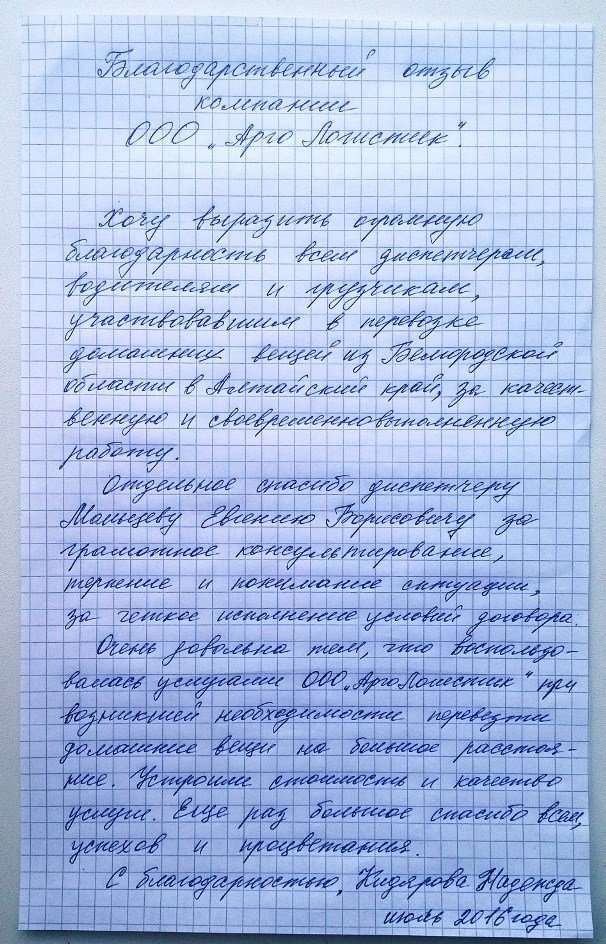 Благодарственный отзыв
компании
ООО „Арго Логистик".
Хочу выразить огромную
благодарность всем диспетчерам,
водителям и грузчикам,
участвовавшим в перевозке
домашних вещей из Белгородской
области в Алтайский край, за качест-
венную и своевременновыполненную
работу.
Отдельное спасибо диспетчеру
Мальцеву Евгению Борисовичу за
грамотное консультирование,
терпение и понимание ситуации,
за четкое исполнение условий договора.
Очень довольна тем, что воспользо-
валась услугами ООО „Арго Логистик" при
возникшей необходимости перевезти
домашние вещи на большое расстоя-
ние. Устроили стоимость и качество
услуг. Еще раз большое спасибо всем,
успехов и процветания.
С благодарностью, Кидярова Надежда
июль 2016 года